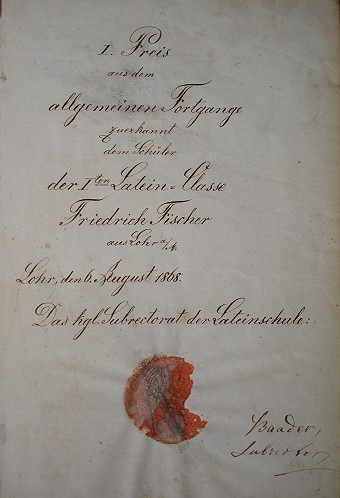 I. Preis
aus dem
allgemeinen Fortgange
zuerkannt
dem Schüler
der Iten Latein-Classe
Friedrich Fischer
aus Lohr a/M.
Lohr, den 6. August 1868.
Das kgl. Subrectorat der Lateinschule:
Baader,
Subrector